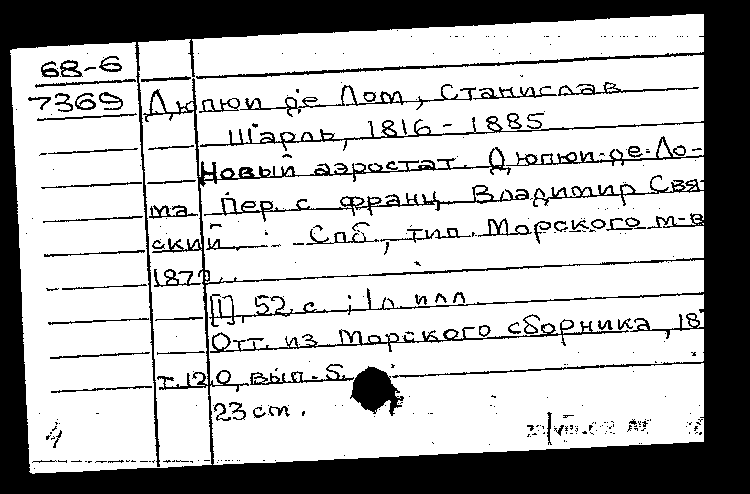 68-6
7369 Дюпюи де Лом, Станислав
Шарль, 1816-1885
Новый аэростат. Дюпюи-де-Ло-
ма. Пер. с франц. Владимир Свя
ский. Спб., тип. Морского м-в
[1], 52 с.; 1 л. илл.
Отт. из Морского сборника, 18
т. 120, вып. 5.
23 см.
4